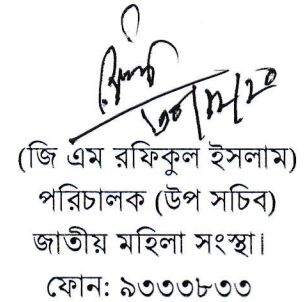 ৩০/১২/২০
(জি এম রফিকুল ইসলাম)
পরিচালক (উপ সচিব)
জাতীয় মহিলা সংস্থা।
ফোন: ৯৩৩৩৮৩৩